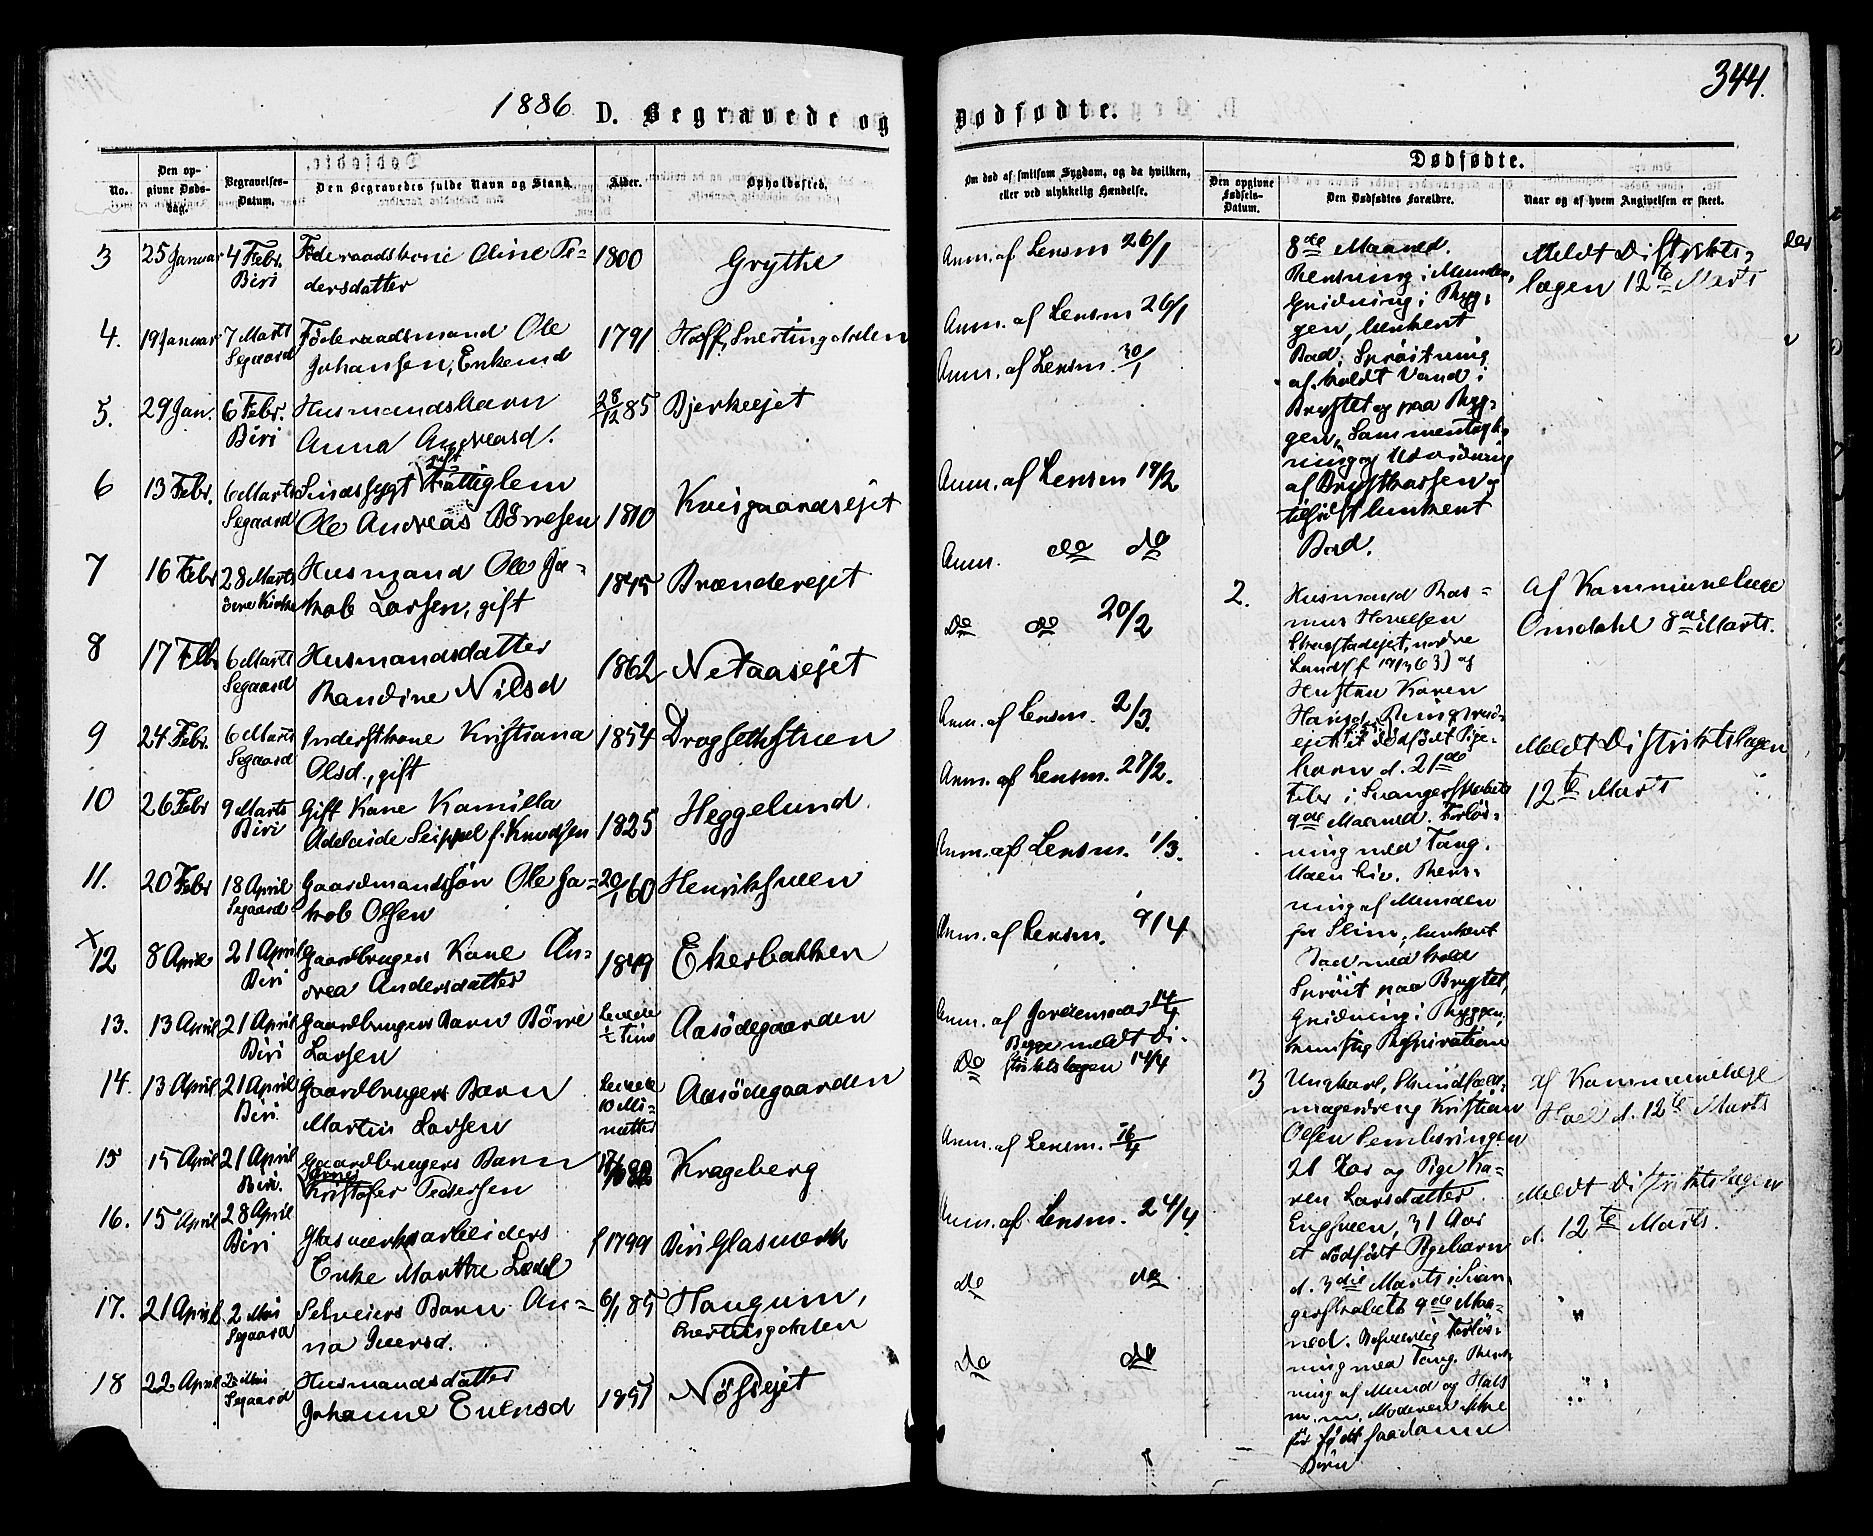 1886 D. Begravede og
No.
Den opgivne Dødsdag.
Begravelses-Datum.
Den Begravedes fulde Navn og Stand.
Alder.
Opholdssted.
3 25 Januar 4 Febr. Føderaadskone Oline Pe- 1800 Grythe
Biri dersdatter
4. 19 Januar 7 Marts Føderaadsmand Ole 1791 Hoff, Snertingdalen
Segaard Johansen, Enkemd
5. 29 Jan. 6 Febr. Husmandsbarn 28/12 85 Bjerkeejet
Biri Anna Andreasd.
6 13 Febr. 6 Marts Sindssygt Fattiglem
Segaard Ole Andreas Børresen 1810 Kvisgaardsejet
7 16 Febr 28 Marts Husmand Ole Ja- 1845 Brænderejet
kob Larsen, gift
8 17 Feb 6 Marts Husmandsdatter 1862 Netaasejet
Segaard Randine Nilsd
9 24 Febr. 6 Marts Inderstkone Kristiana 1854 Dragsethstuen
Segaard Olsd., gift
10 26 Febr 9 Marts Gift Kone Kamilla Heggelund
Biri Adelaide Seippel f. Knudsen 1825
11. 20 Febr 18 April Gaardmandssøn Ole Ja- 20/1 60 Henriksveen
Segaard kob Olsen
x 12 8 April 21 April Gaardbrugers Kone An- 1849 Ekerbakken
Biri drea Andersdatter
13. 13 April 21 April Gaardbrugers Barn Børre levede 1/2 Time Aasødegaarden
Biri Larsen
14. 13 April 21 April Gaardbrugers Barn levede Aasødegaarden
Biri. Martin Larsen 10 Mi-
nutter
15 15 April 21 April Gaardbrugers Barn Krageberg
Biri. Kristofer Pedersen
16. 15 April 28 April Glasværksarbeiders f 1799 Biri Glasværk
Biri Enke Marthe
17. 21 April 2 Mai Selveiers Barn An- 6/1 85 Haugum,
Segaard na Iversd. Snertingdalen
18 22 April 2 Mai Husmandsdatter
Segaard Johanne Evensd 1851 Nøssejet
Dødfødte.
344.
Om død af smitsom Sygdom, og da hvilken,
eller ved ulykkelig Hændelse.
Dødfødte.
Den opgivne Fødsels-Datum.
Den Dødfødtes Forældre.
Naar og af hvem Angivelsen er skeet.
Anm. af Lensm 26/1
Anm. af Lensm 26/1
Anm. af Lensm. 30/1
Anm. af Lensm 19/2
Anm. do do
Do do 20/2
Anm. af Lensm. 2/3.
Anm. af Lensm. 27/2.
Anm. af Lensm. 1/3.
Anm. af Lensm. 9/4
Anm. af Jordemoder 14/4
Begge meldt Di-
Do striktslægen 14/4
Anm. af Lensm. 16/4
Anm. af Lensm. 24/4
do do
Do do
8de Maaned.
Rensning i Munden,
Gnidning i Ryg-
gen, lunkent
Bad, Sprøitning
af koldt Vand i
Brystet og paa Ryg-
gen, Sammentryk-
ning og Udvidning
af Brystkassen og
tilsidst lunkent
Bad.
2. Husmand Ras-
mus
nordre
Land (f. 19/3 63) og
Hustru Karen
et dødfødt Pige-
barn d. 21de
Febr i Svangerskabets
9de Maaned. Forløs-
ning med Tang.
Uden Liv. Rens-
ning af Munden
for Slim, lunkent
Bad med kold
Sprøit paa Brystet,
Gnidning i Ryggen,
kunstig Respiration
3 Ungkarl, Skindfeld-
magerdreng Kristian
Olsen
21 Aar og Pige Ka-
ren Larsdatter
Engsveen, 31 Aar
et dødfødt Pigebarn
d. 3die Marts i Svan-
gerskabets 9de Maa-
ned. Besværlig Forløs-
ning med Tang. Rens-
ning af Mund og Hals
m. m. Moderen ikke
før født saadanne
Børn
Meldt Distrikts-
lægen 12te Marts
Af Kommunelæge
Omdahl 8de Marts.
Meldt Distriktslægen
12te Marts
af Kommunelæge
d. 12te Marts
Meldt Distriktslægen
d. 12te Marts.